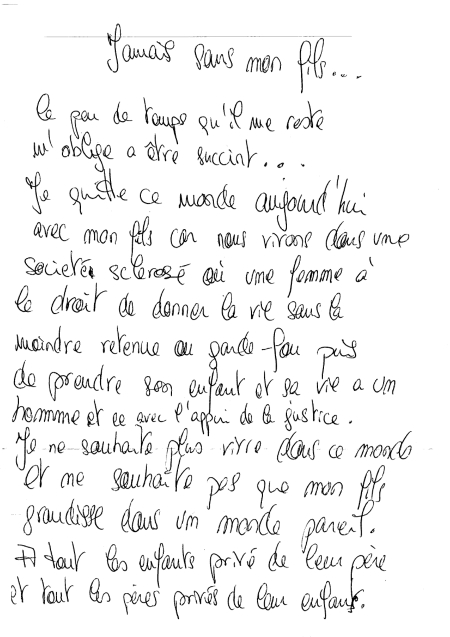 Jamais sans mon fils...
le peu de temps qu'il me reste
m'oblige a être succint...
Je quitte ce monde aujourd'hui
avec mon fils car nous vivons dans une
societé sclerosé où une femme à
le droit de donner la vie sans la
moindre retenue ou garde-fou puis
de prendre son enfant et sa vie a un
hommme et ce avec l'appui de la justice.
Je ne souhaite plus vivre dans ce monde
et ne souhaite pas que mon fils
grandisse dans un monde pareil.
A tout les enfants privé de leur père
et tout les pères privés de leur enfants.